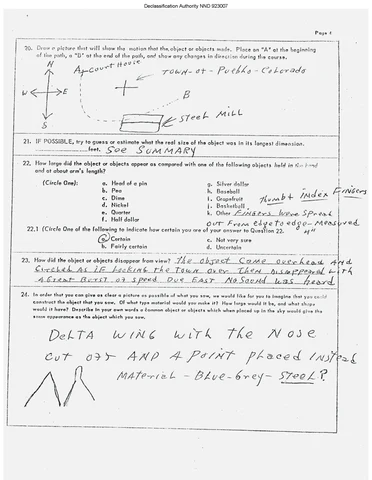 Declassification Authority NND 923007
Page 6
20. Draw a picture that will show the motion that the object or objects made. Place an "A" at the beginning
of the path, a "B" at the end of the path, and show any changes in direction during the course.
N
A-Court House
TOWN-OF-Pueblo-Colorado
W E
B
S
Steel Mill
21. IF POSSIBLE, try to guess or estimate what the real size of the object was in its longest dimension.
feet. See SUMMARY
22. How large did the object or objects appear as compared with one of the following objects held in the hand
and at about arm's length?
(Circle One): a. Head of a pin g. Silver dollar
b. Pea h. Baseball
c. Dime i. Grapefruit Thumb & index Fingers
d. Nickel j. Basketball
e. Quarter k. Other Fingers Were Spread
f. Half dollar out From edge to edge-Measured
22.1 (Circle One of the following to indicate how certain you are of your answer to Question 22. 4"
a. Certain c. Not very sure
b. Fairly certain d. Uncertain
23. How did the object or objects disappear from view? The object came overhead AND
Circled AS if looking the Town over Then disappeared with
A Great Burst of speed Due East No Sound was heard
24. In order that you can give as clear a picture as possible of what you saw, we would like for you to imagine that you could
construct the object that you saw. Of what type material would you make it? How large would it be, and what shape
would it have? Describe in your own words a common object or objects which when placed up in the sky would give the
same appearance as the object which you saw.
DeLTA WING WITH the NOSE
CUT OFF AND A POINT PLACED INSTEAD
MATERIAL - BLUE-Grey - STEEL?